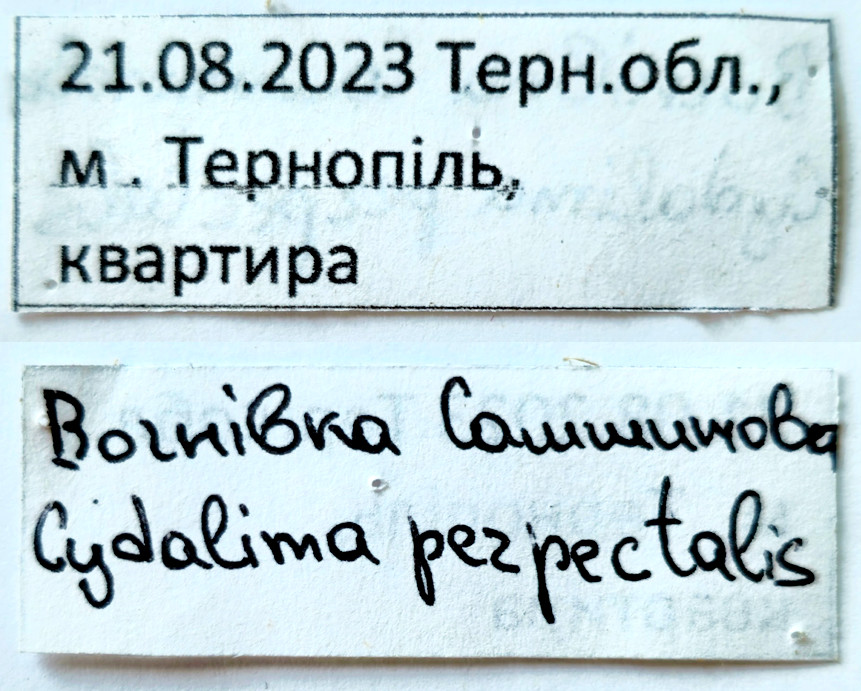 21.08.2023 Терн.обл.,
м . Тернопіль,
квартира
Вогнівка Самшитова
Cydalima perpectalis